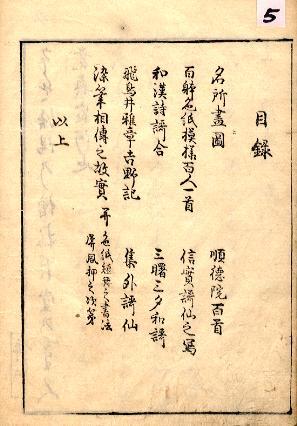 5
目録
名所畫圖 順徳院百首
百種色紙模様百人首 信實謌仙之寫
和漢詩謌合 三曙三夕和謌
飛鳥井雅章吉野記 集外謌仙
染筆相傳之故實 并色紙短冊之書法
屏風押之次第
以上